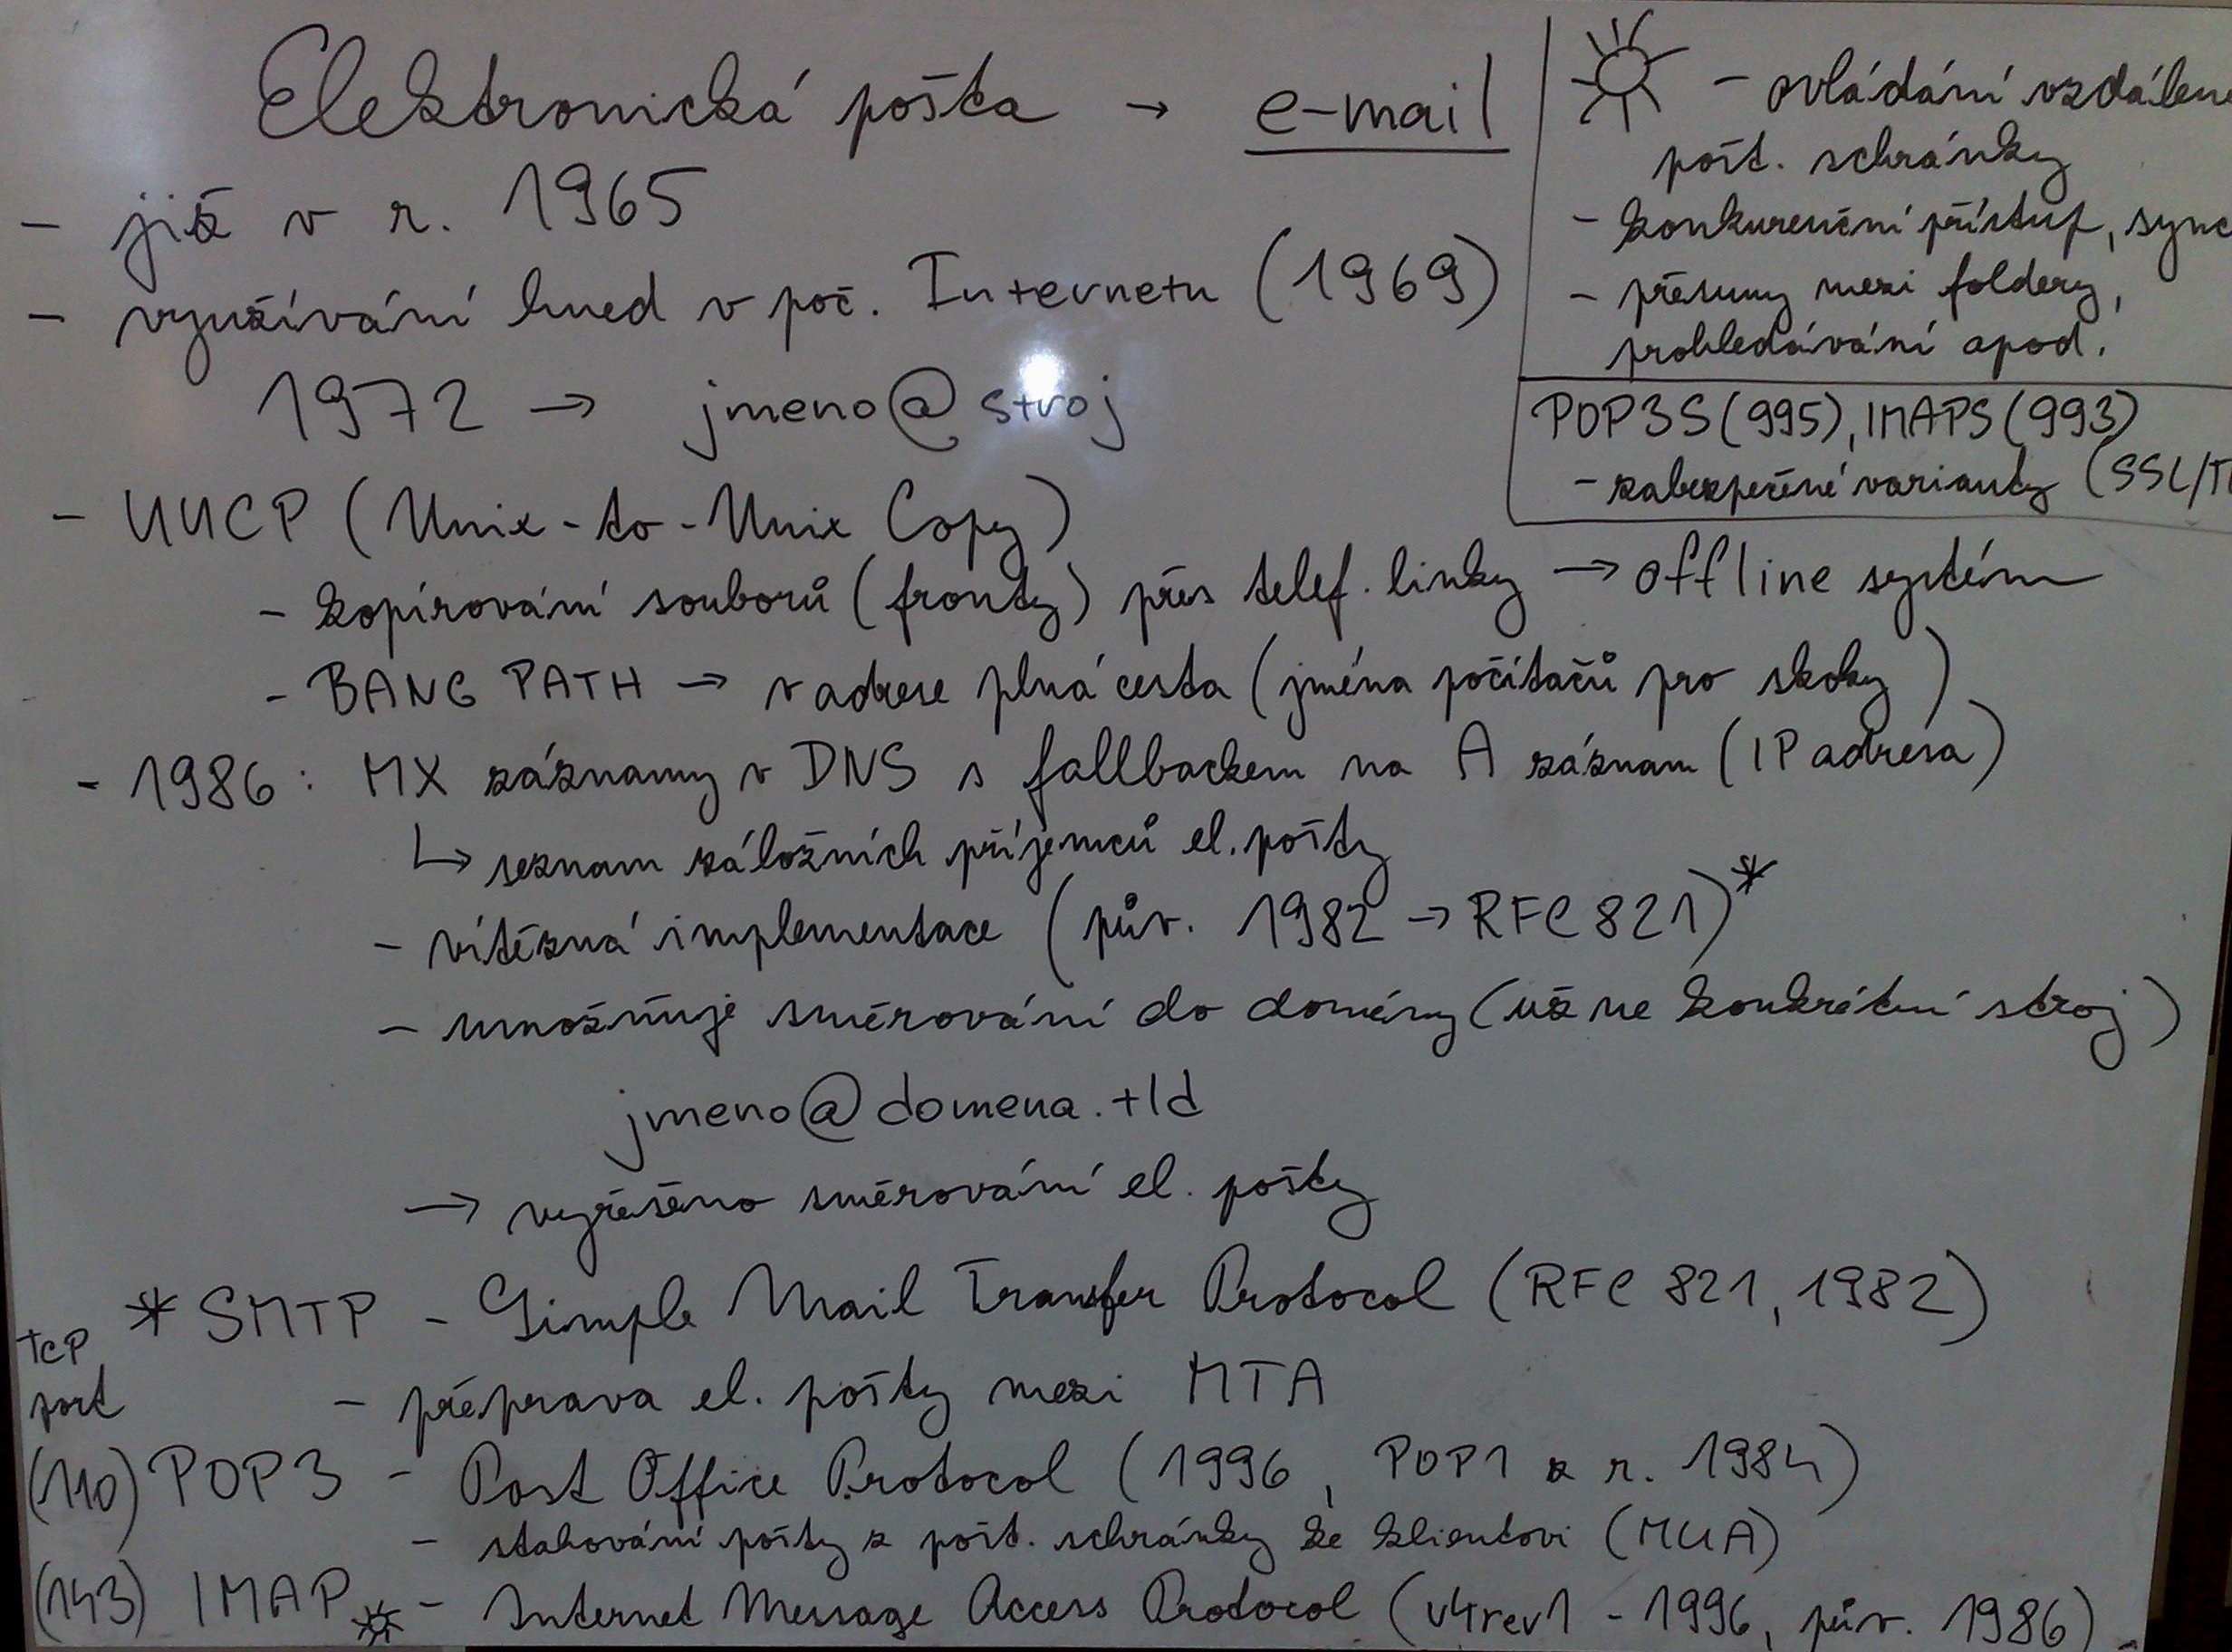 Elektronická pošta → e-mail
- již v r. 1965
- využívání hned v poč. Internetu (1969)
1972 → jmeno@stroj
- UUCP (Unix-to-Unix Copy)
- kopírování souborů (fronty) přes telef. linky → offline systém
- BANG PATH → v adrese plná cesta (jména počítačů pro skoky)
- 1986: MX záznamy v DNS s fallbackem na A záznam (IP adresa)
↳ seznam záložních příjemců el. pošty
- vítězná implementace (pův. 1982 → RFC 821)*
- umožňuje směrování do domény (už ne konkrétní stroj)
jmeno@domena.tld
→ vyřešeno směrování el. pošty
* SMTP - Simple Mail Transfer Protocol (RFC 821, 1982)
- přeprava el. pošty mezi MTA
TCP
port
(110) POP3 - Post Office Protocol (1996, POP1 z r. 1984)
- stahování pošty z pošt. schránky ke klientovi (MUA)
(143) IMAP - Internet Message Access Protocol (v4rev1 - 1996, pův. 1986)
- ovládání vzdálené
pošt. schránky
- konkurenční přístup, sync
- přesuny mezi foldery,
prohledávání apod.
POP3S (995), IMAPS (993)
- zabezpečené varianty (SSL/T